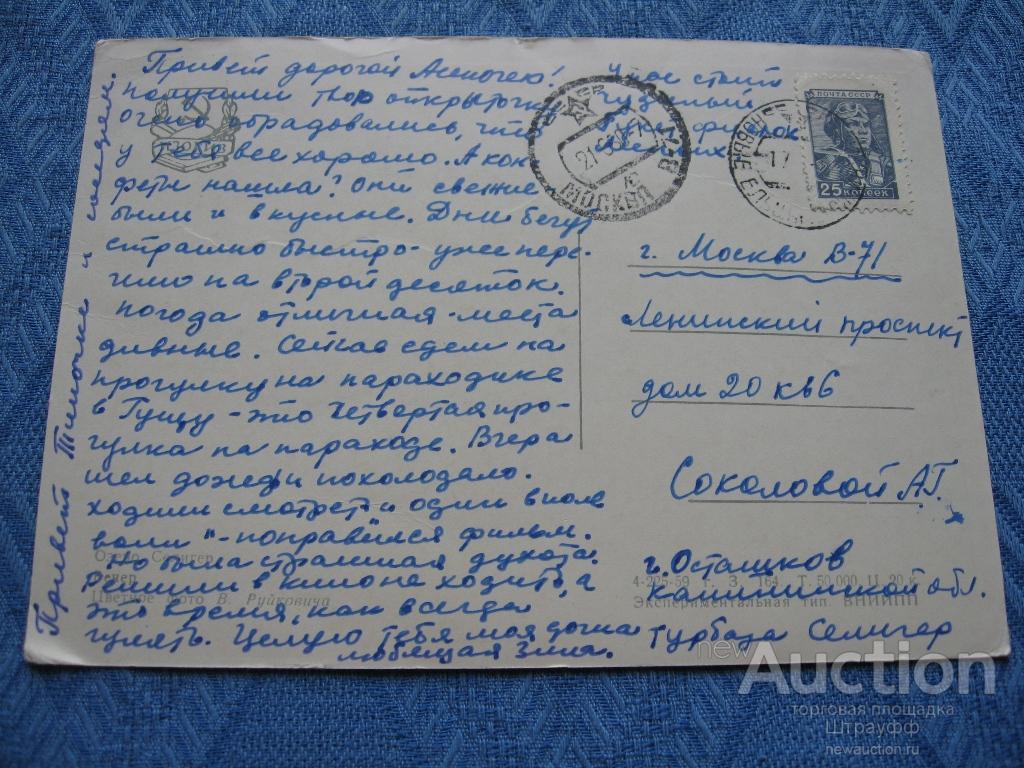 Привет дорогой Асеночек!
получили твою открыточку
очень обрадовались, что
у тебя все хорошо. А кон
феты нашла? Они свежие
были и вкусные. Дни бегут
страшно быстро - уже пере-
шло на второй десяток.
погода отличная - места
дивные. Сейчас едем на
прогулку на параходике
в Гущу - это четвертая про-
гулка на параходе. Вчера
шел дождь и похолодало.
ходили смотреть "и один в поле
воин" - понравился фильм.
Но была страшная духота.
Решили в кино не ходить, а
это время, как всегда
гулять. Целую тебя моя дочка
любящая Зина.
Привет Тимочке и соседям.
У нас стоит
чудесный
букет фиалок
ПОЧТА СССР
25 КОПЕЕК
МОСКВА
г. Москва В-71
Ленинский проспект
дом 20 кв 6
Соколовой А.Г.
г. Осташков
Калининской обл.
турбаза Селигер
Озеро Селигер
Вечер
Цветное фото В. Руйковича
4-225-59 г. З. 164. Т. 50.000. Ц. 20 к.
Экспериментальная тип. ВНИИПП
newAuction
торговая площадка
Штрауфф
newauction.ru